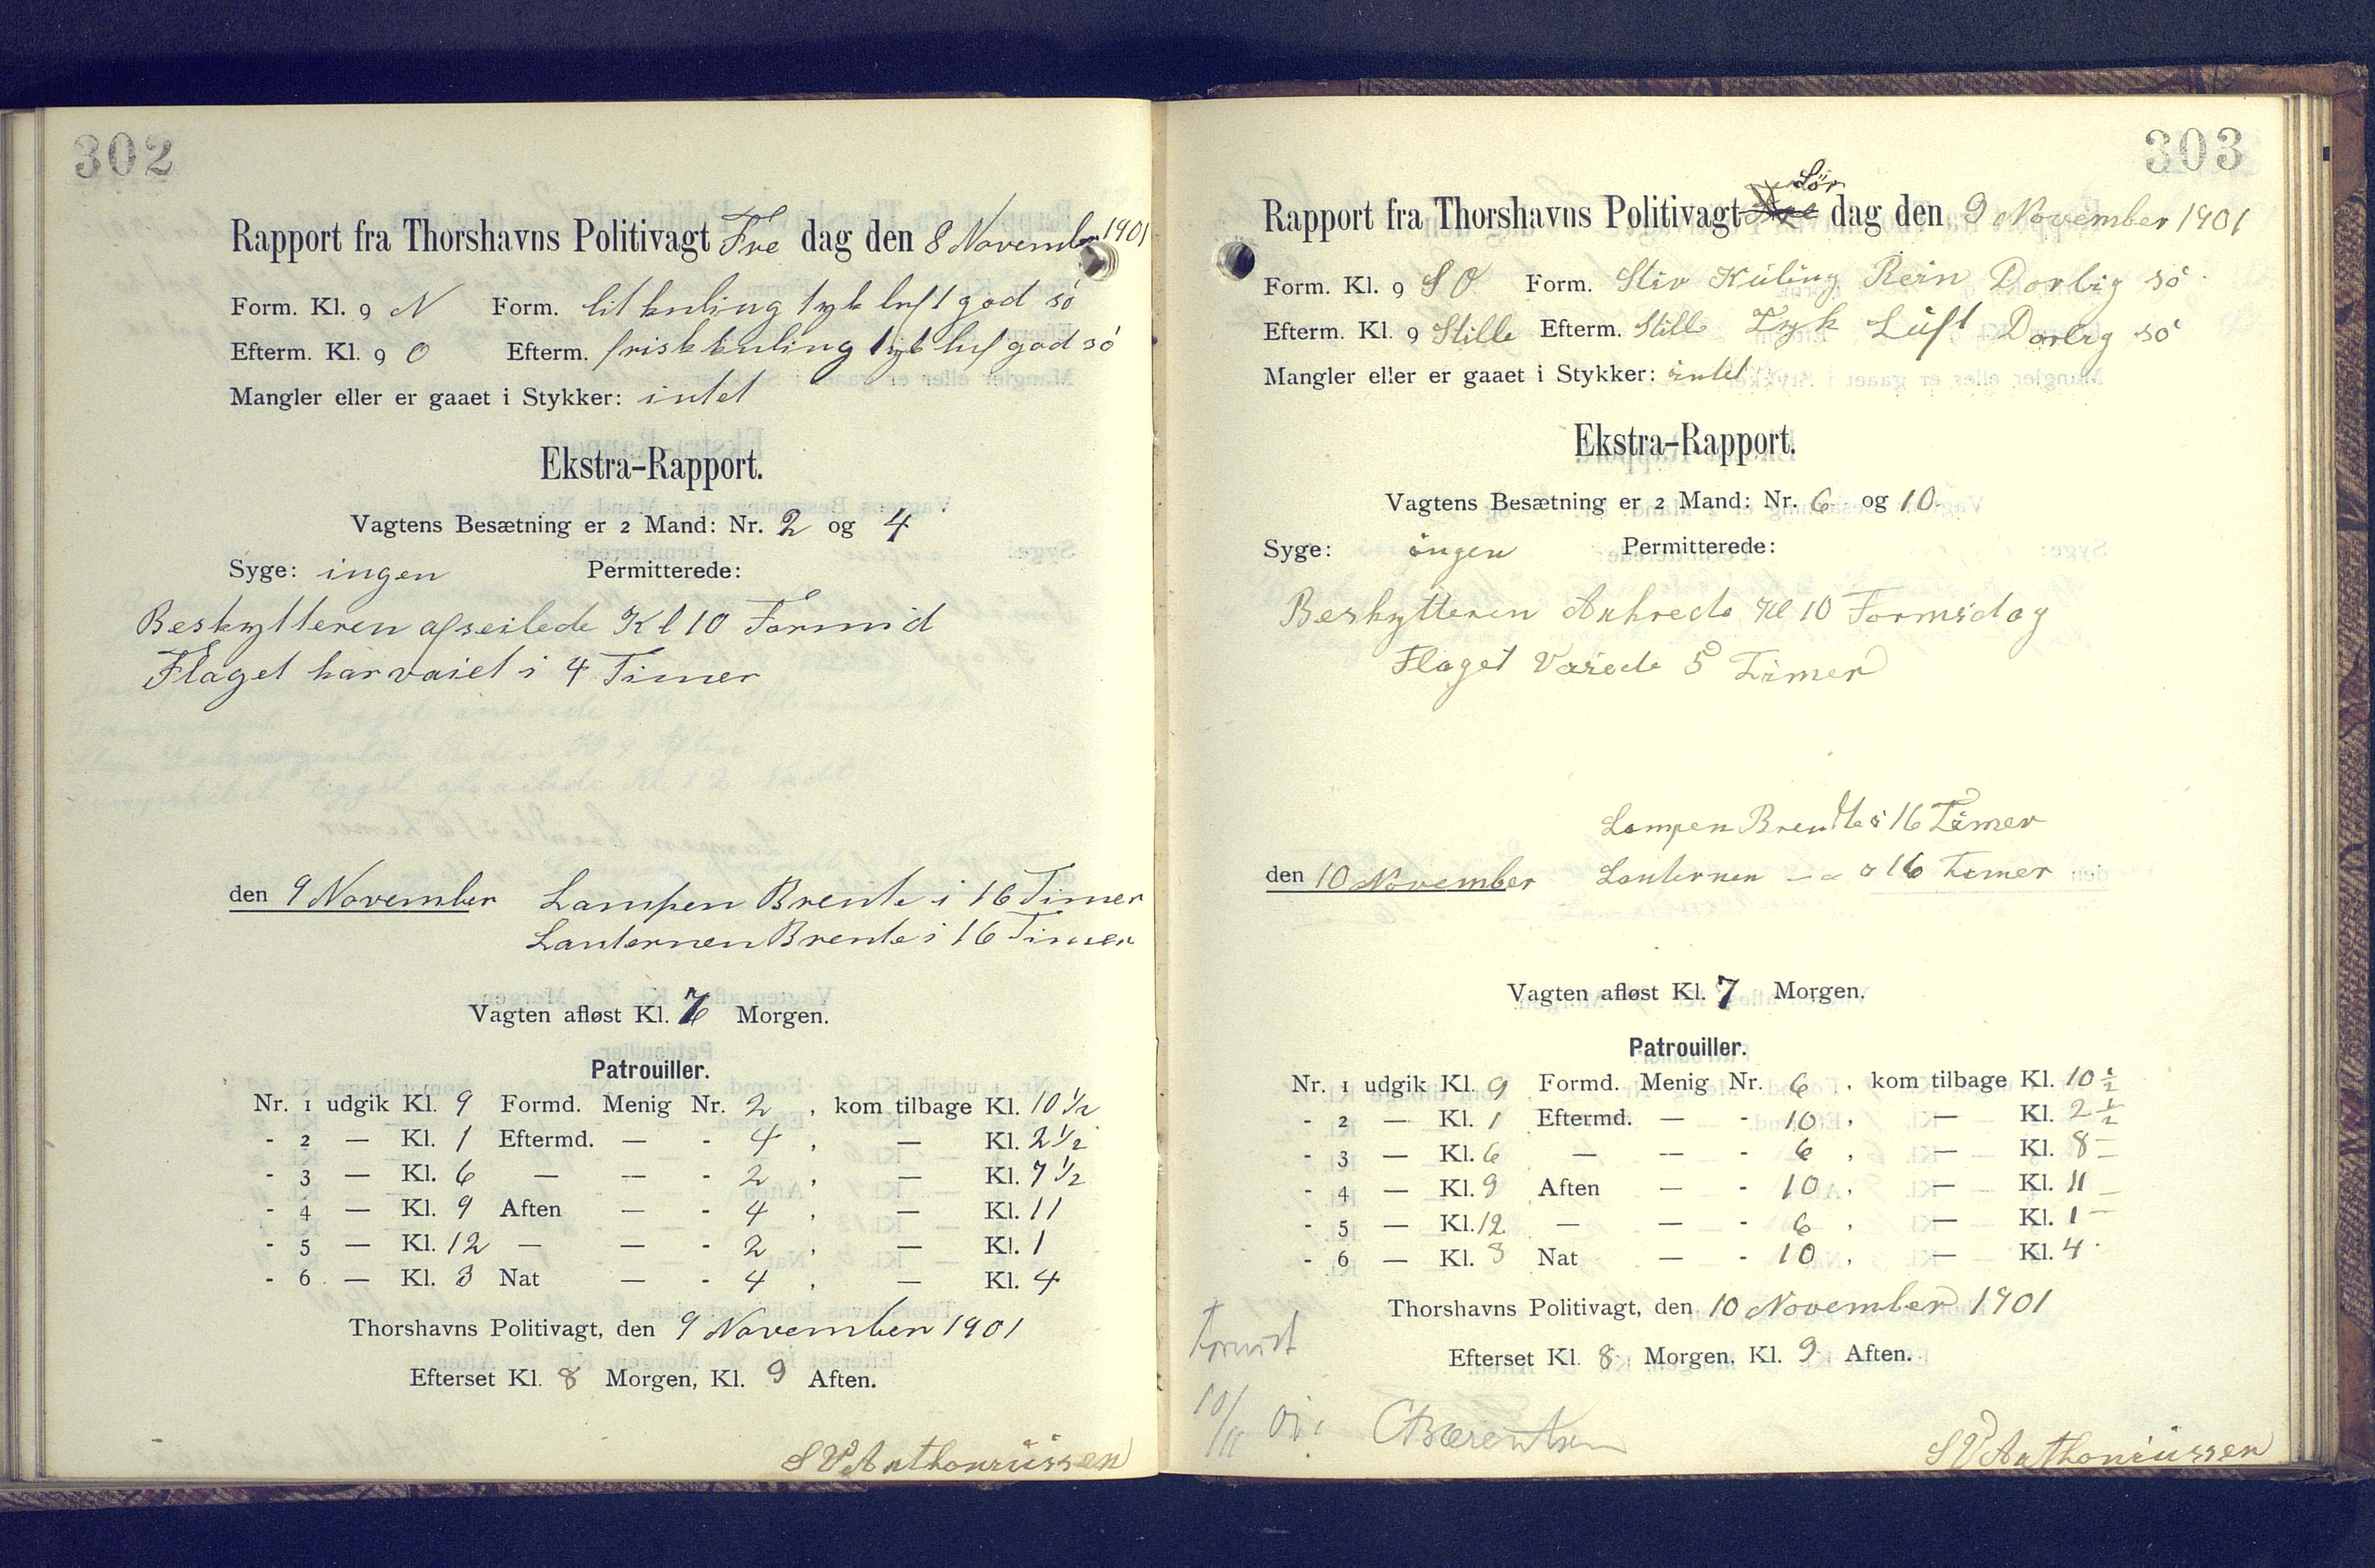 302
Rapport fra Thorshavns Politivagt Fre dag den 8 November 1901
Form. Kl. 9 N Form. lit kuling tyk luft god sö
Efterm. Kl. 9 O Efterm. frisk kuling tyk luf god sö
Mangler eller er gaaet i Stykker: intet
Ekstra-Rapport.
Vagtens Besætning er 2 Mand: Nr. 2 og 4
Syge: ingen Permitterede:
Beskytteren afseilede Kl 10 Formid
Flaget har vaiet i 4 Timer
den 9 November Lampen Brente i 16 Timer
Lanternen Brente i 16 Timer
Vagten afløst Kl. 7 Morgen.
Patrouiller.
Nr. 1 udgik Kl. 9 Formd. Menig Nr. 2, kom tilbage Kl. 10 1/2
- 2 — Kl. 1 Eftermd. — - 4, — Kl. 2 1/2
- 3 — Kl. 6 — — - 2, — Kl. 7 1/2
- 4 — Kl. 9 Aften — - 4, — Kl. 11
- 5 — Kl. 12 — — - 2, — Kl. 1
- 6 — Kl. 3 Nat — - 4, — Kl. 4
Thorshavns Politivagt, den 9 November 1901
Efterset Kl. 8 Morgen, Kl. 9 Aften.
S V Anthoniussen
303
Rapport fra Thorshavns Politivagt Lör dag den 9 November 1901
Form. Kl. 9 S O Form. Stiv Küling Rein Dorlig sö
Efterm. Kl. 9 Stille Efterm. Stille Tyk Lüft Darlig sö
Mangler eller er gaaet i Stykker: intet
Ekstra-Rapport.
Vagtens Besætning er 2 Mand: Nr. 6 og 10
Syge: ingen Permitterede:
Beskytteren Ankrede Kl 10 Formidag
Flaget Vaiede 5 Timer
Lampen Brendte i 16 Timer
den 10 November Lanternen — 16 Timer
Vagten afløst Kl. 7 Morgen.
Patrouiller.
Nr. 1 udgik Kl. 9 Formd. Menig Nr. 6, kom tilbage Kl. 10 1/2
- 2 — Kl. 1 Eftermd. — - 10, — Kl. 2 1/2
- 3 — Kl. 6 — — - 6, — Kl. 8 —
- 4 — Kl. 9 Aften — - 10, — Kl. 11 —
- 5 — Kl. 12 — — - 6, — Kl. 1 —
- 6 — Kl. 3 Nat — - 10, — Kl. 4
Thorshavns Politivagt, den 10 November 1901
Efterset Kl. 8 Morgen, Kl. 9 Aften.
10/11 01. CBærentsen
S V Anthoniussen